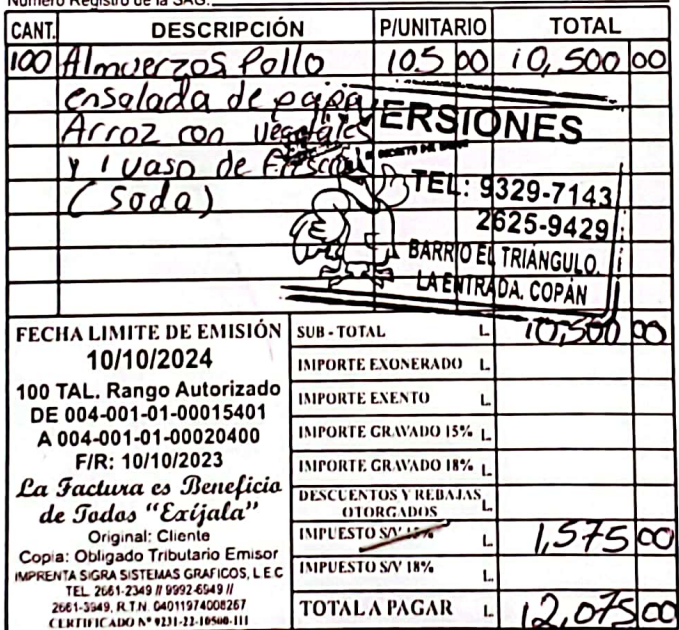 Número Registro de la SAG:
CANT. DESCRIPCIÓN P/UNITARIO TOTAL
100 Almuerzos Pollo 105 00 10,500 00
ensalada de papa
Arroz con vegetales
y 1 vaso de
(Soda)
ERSIONES
TEL: 9329-7143
2625-9429
BARRIO EL TRIÁNGULO,
LA ENTRADA, COPÁN
FECHA LIMITE DE EMISIÓN
10/10/2024
100 TAL. Rango Autorizado
DE 004-001-01-00015401
A 004-001-01-00020400
F/R: 10/10/2023
La Factura es Beneficio
de Todos "Exíjala"
Original: Cliente
Copia: Obligado Tributario Emisor
IMPRENTA SIGRA SISTEMAS GRAFICOS, L E C
TEL. 2661-2349 // 9992-6949 //
2661-3949, R.T.N. 04011974008267
CERTIFICADO Nº 9231-22-10500-111
SUB - TOTAL L. 10,500 00
IMPORTE EXONERADO L.
IMPORTE EXENTO L.
IMPORTE GRAVADO 15% L.
IMPORTE GRAVADO 18% L.
DESCUENTOS Y REBAJAS OTORGADOS L.
IMPUESTO S/V 15% L. 1,575 00
IMPUESTO S/V 18% L.
TOTAL A PAGAR L. 12,075 00